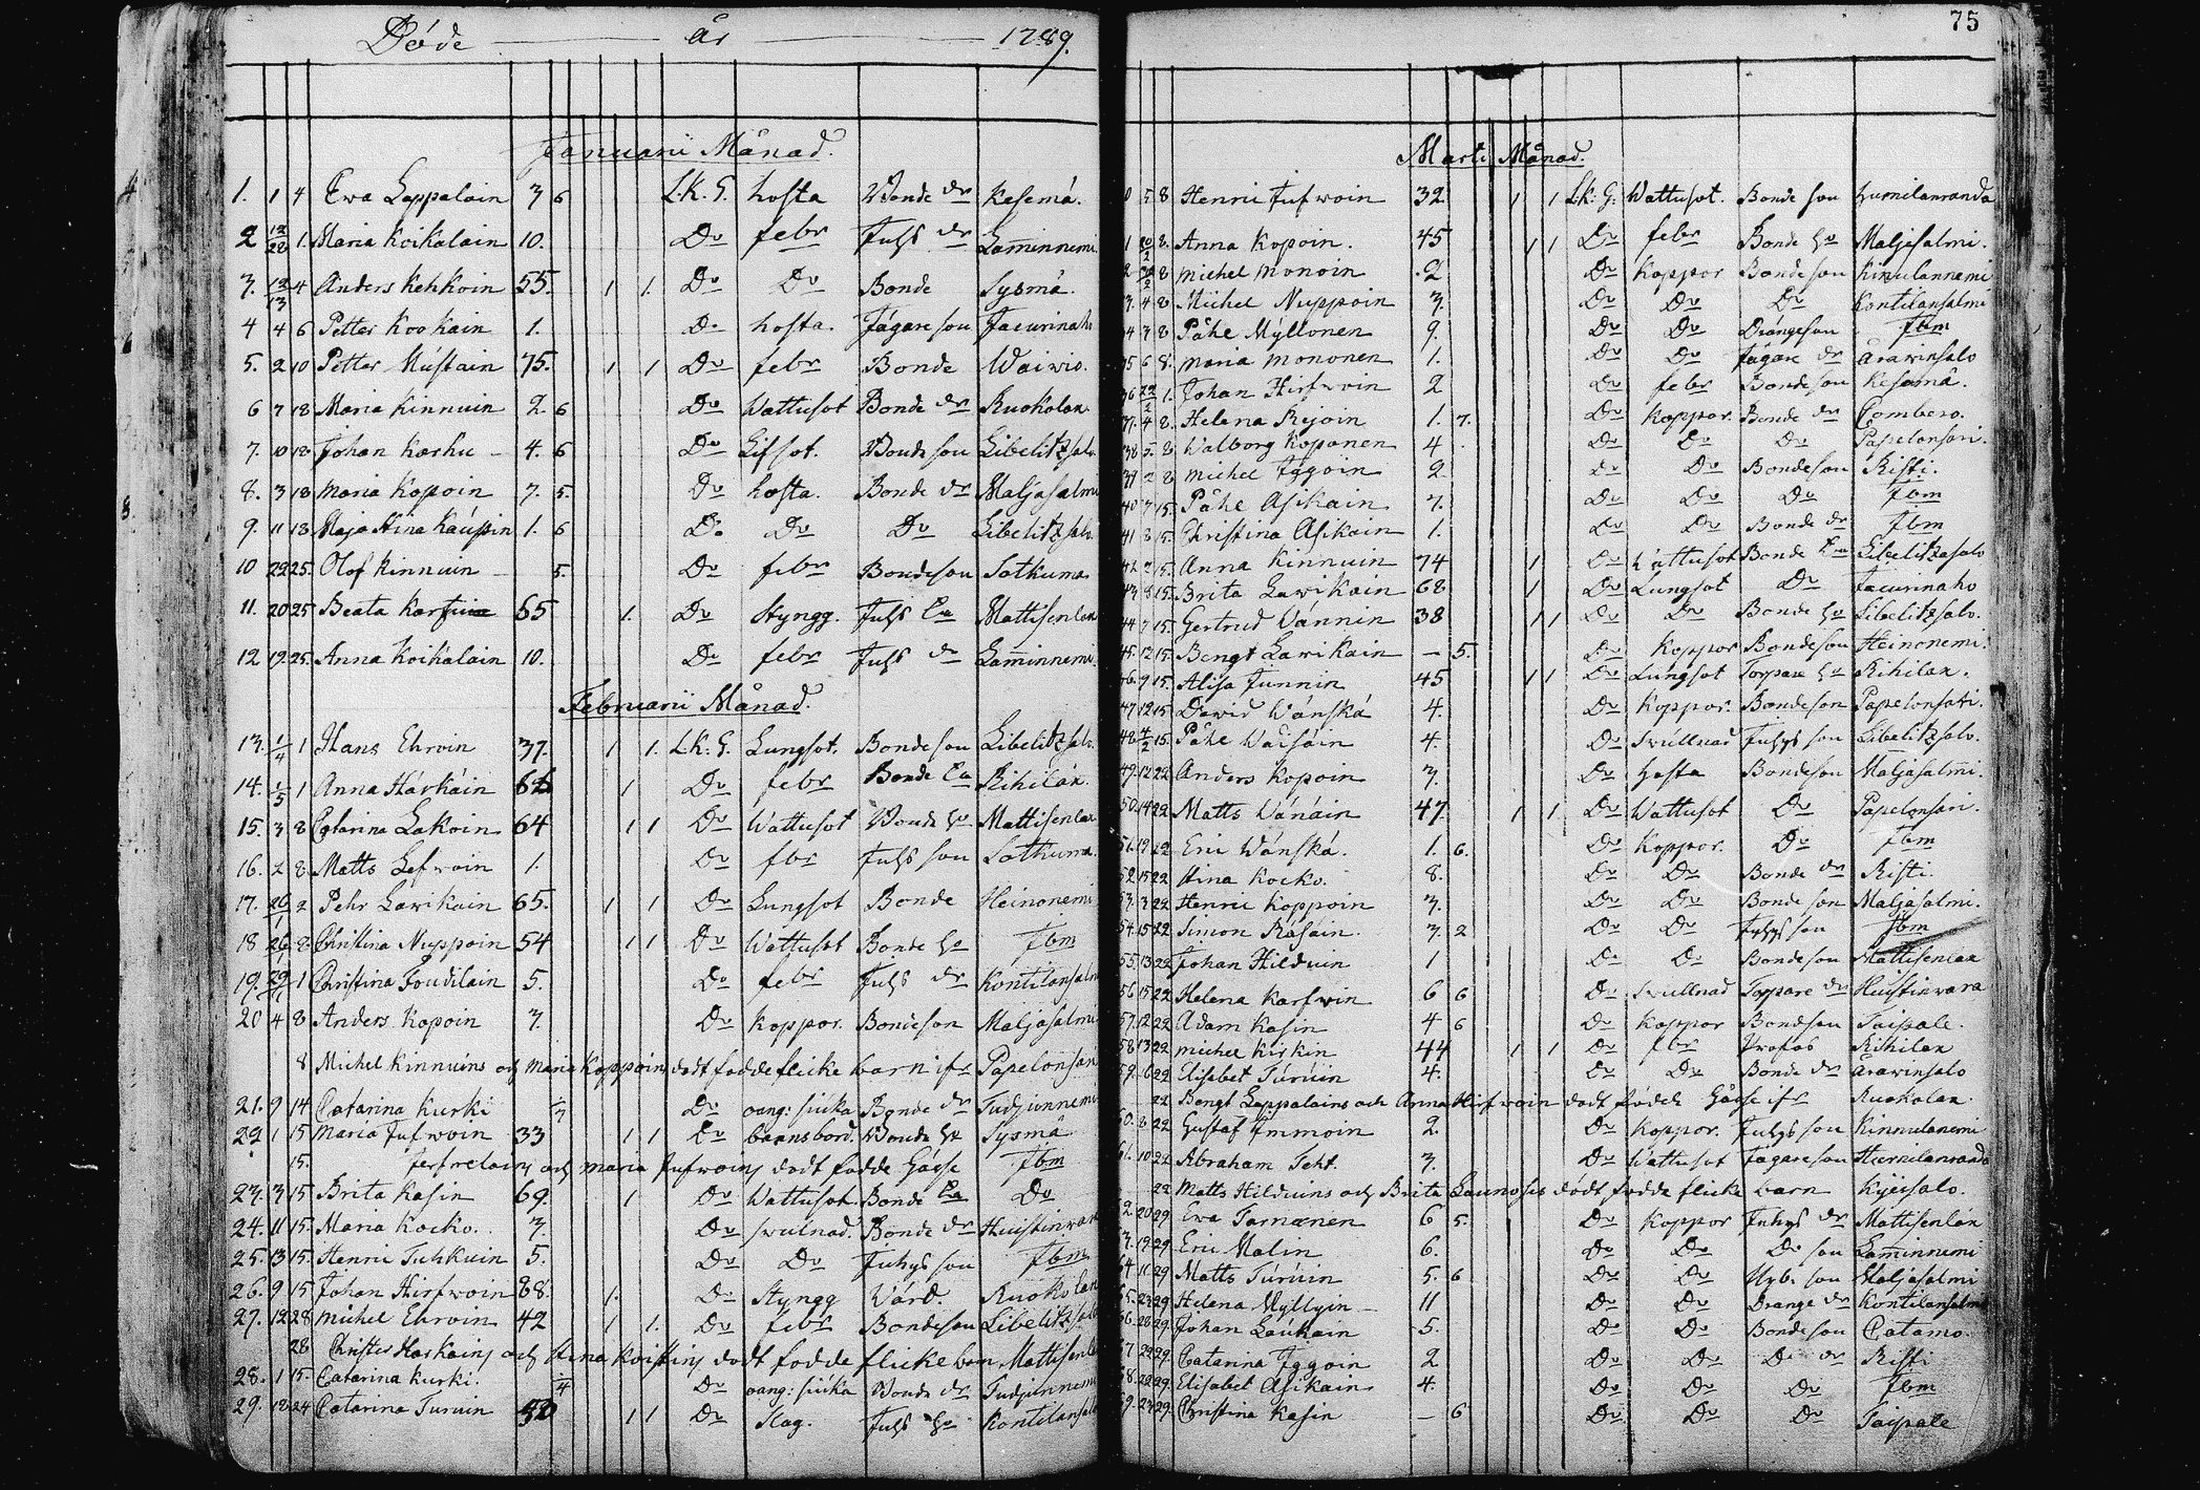 Döde år 1789.
Januarii Månad.
1. 1 4 Ewa Lappalain 3 6 L.K.G. hosta Bonde dr Kesemä.
2 12/28 1. Maria Koikalain 10. Do febr Juhs dr Laminnemi.
3. 12/13 4 Anders Kehkoin 55. 1 1. Do Do Bonde Sysmä.
4 4 6 Petter Kookain 1. Do hosta. Jägare son Jacurinaho
5. 2 10 Petter Mustain 75. 1 1 Do febr Bonde Waiwio.
6 7 18 Maria Kinnuin 2. 6 Do Wattusot Bonde dr Ruokolax
7. 10 18 Johan Karhu 4. 6 Do Lifsot. Bonde son Libelitzsalo
8. 3 18 Maria Kopoin 7. 5. Do hosta. Bonde dr Maljasalmi
9. 11 18 Maja Stina Kaupin 1. 6 Do Do Do Libelitzsalo
10 22 25. Olof Kinnuin 5. Do febr Bondeson Sotkuma
11. 20 25 Beata 65 1. Do Styngg. Juhs Ea Mattisenlax
12 19 25. Anna Koikalain 10. Do febr Juhs dr Laminnemi.
Februarii Månad.
13. 1/4 1 Hans Ehroin 37. 1 1. L.K.G. Lungsot. Bondeson Libelitzsalo.
14. 1/5 1 Anna Härkäin 1 Do febr Bonde Ea Rihilax.
15. 3 8 Catarina Lakoin 64 1 1 Do Wattusot Bonde Ho Mattisenlax
16. 2 8 Matts Lefwoin 1. Do fbr Juhs son Sotkuma.
17. 26/1 2 Pehr Lawikain 65. 1 1 Do Lungsot Bonde Heinonemi
18 26/1 2 Christina Nuppoin 54 1 1 Do Wattusot Bonde Ho Jbm
19. 29/1 1 Christina Joudilain 5. Do febr Juhs dr Kontilansalmi
20 4 8 Anders Kopoin 7. Do Koppor. Bondeson Maljasalmi
8 Michel Kinnuins och Maria Koppoins dödt födde flicke barn ifr Papelonsari
21. 9 14 Catarina Kurki 1/7 Do oang: siuka Bonde dr Tudjunnemi
22 1 15 Maria Jufwoin 33 1 1 Do barnsbörd. Bonde Ho Sysmä
15. och Maria Jufwoins dödt födde Gåsse Jbm
23. 3 15 Brita Kasin 69. 1 Do Wattusot Bonde Ea Do
24. 11 15. Maria Kocko. 3. Do swulnad. Bonde dr Huistinwara
25. 13 15. Henric Tuhkuin 5. Do Do Juhys son Jbm
26. 9 15 Johan Hirfwoin 88. 1. Do Styngg Wärd. Ruokolax
27. 12 28 Michel Ehroin 42 1 1. Do febr Bondeson Libelitzsalo
28 Christer Härkäins och Stina Koistins dodt födde flicke barn Mattisenlax
28. 1 15. Catarina Kurki. 1/4 Do oang: siuka Bonde dr Tudjunnemi
29. 18 24 Catarina Turuin 50 1 1 Do Slag. Juhs Ho Kontilansalmi
75
Marti Månad.
0 5 8 Henric Jufwoin 32 1 1 L.K.G. Wattusot. Bonde son Hurnilanranda
1 20/2 8. Anna Kopoin. 45 1 1 Do febr Bonde Ho Maljasalmi.
2 8 Michel Monoin 2 Do Koppor Bondeson Kinulannemi
3. 4 8 Michel Nuppoin 3. Do Do Do Kontilansalmi
4 3 8 Påhe Myllonen 9. Do Do Drangeson Jbm
35 6 8. Maria Mononen 1. Do Do Jägare dr Arawinsalo
36 22/2 1. Johan Hirfwoin 2 Do febr Bondeson Kesamä.
37. 4 8. Helena Rejoin 1. 7. Do Koppor. Bonde dr Combero.
38 5. 8 Walborg Koponen 4 Do Do Do Papelonsari.
39 2 8 Michel Iggoin 2. Do Do Bondeson Risti.
40 7 15. Påhe Asikain 7. Do Do Do Jbm
41 8 15. Christina Asikain 1. Do Do Bonde dr Jbm
42 7 15. Anna Kinnuin 74 1 Do Wattusot Bonde Ea Libelitzsalo
43 8 15. Brita Lawikain 68 1 Do Lungsot Do Jacurinaho
44 7 15. Gertrud Wännin 38 1 1 Do Do Bonde Ho Libelitzsalo.
45. 12 15. Bengt Lawikain – 5. Do Koppor Bondeson Heinonemi.
46. 9 15. Alisa Junnin 45 1 1 Do Lungsot Torpare Ho Rihilax.
47 12 15 Dawid Wänskä 4. Do Koppor. Bondeson Papelonsari.
48 4/2 15. Påhe Waisäin 4. Do Swullnad Juhys son Libelitzsalo.
49. 12 22 Anders Kopoin 3. Do Hosta Bondeson Maljasalmi.
50. 14 22 Matts Wänäin 47. 1 1 Do Wattusot Do Papelonsari.
51. 19 22 Eric Wänskä. 1. 6. Do Koppor. Do Jbm
52. 15 22 Stina Kocko. 8. Do Do Bonde dr Risti.
53. 3 22 Henric Koppoin 3. Do Do Bondeson Maljasalmi.
54. 15 22 Simon Räsäin. 3. 2 Do Do Juhys son Jbm
55. 13 22 Johan Hilduin 1 Do Do Bondeson Mattisenlax
56 15 22 Helena Karfwin 6 6 Do Swullnad Torpare dr Huistinwara
57. 12 22 Adam Kasin 4 6 Do Koppor Bondson Taipale.
58 13 22 Michel Kiskin 44 1 1 Do fbr Profos Riskilax
59. 6 22 Elisabet Turuin 4. Do Do Bonde dr Arawinsalo
22 Bengt Lappalains och Anna Hirfwoin dodt födde Gåsse ifr Ruokolax.
60. 8 22 Gustaf Immoin 2. Do Koppor. Juhys son Kinnulanemi
61. 10 22 Abraham Teht. 3. Do Wattusot Jagareson Hurnilanranda
22 Matts Hilduins och Brita Launosis dödt födde flicke barn Kyusalo.
2. 20 29 Ewa Tarnanen 6 5. Do Koppor Juhys dr Mattisenlax
3. 19 29 Eric Malin 6. Do Do Do son Laminnemi
64 11 29 Matts Turuin 5. 6 Do Do Nyb. son Maljasalmi
65. 23 29 Helena Myllyin 11 Do Do Drange dr Kontilansalmi
66. 28 29. Johan Laukain 5. Do Do Bondeson Catamo.
67 22 29. Catarina Iggoin 2 Do Do Do dr Risti
68. 22 29. Elisabet Asikain 4. Do Do Do Jbm
69. 27 29. Christina Kasin – 6 Do Do Do Taipale